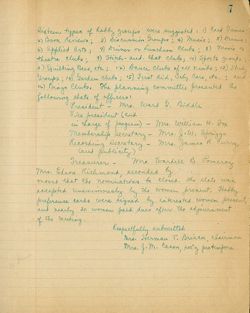 7
Sixteen types of hobby groups were suggested: 1) Card Games
2) Book Reviews; 3) Discussion Groups; 4) Music; 5) Drama
6) Applied Arts; 7) Dinner or Luncheon Clubs; 8) Movie or
theatre clubs; 9) Stitch-and-that clubs; 10) Sports groups;
11) Quilting Bees, etc.; 12) Dance Clubs
Groups; 14) Garden Clubs; 15) First Aid, Baby Care, etc.; and
16) Bingo Clubs. The planning committee presented the
following slate of officers:
President - Mrs. Ward G. Biddle
Vice president (and
in charge of program) - Mrs. William H. Fox
Membership Secretary - Mrs. J. W.
Recording Secretary - Mrs. James R.
(and publicity)
Treasurer - Mrs. Wardell B. Pomeroy
Mrs. Edna Richmond, seconded by
move that the nominations be closed. The slate was
accepted unanimously by the women present. Hobby
preference cards were signed by interested women present,
and nearly 30 women paid dues after the adjournment
of the meeting.
Respectfully submitted
Mrs. Herman T. Briscoe, chairman
Mrs. J. M. Cason, sec'y pro tempore